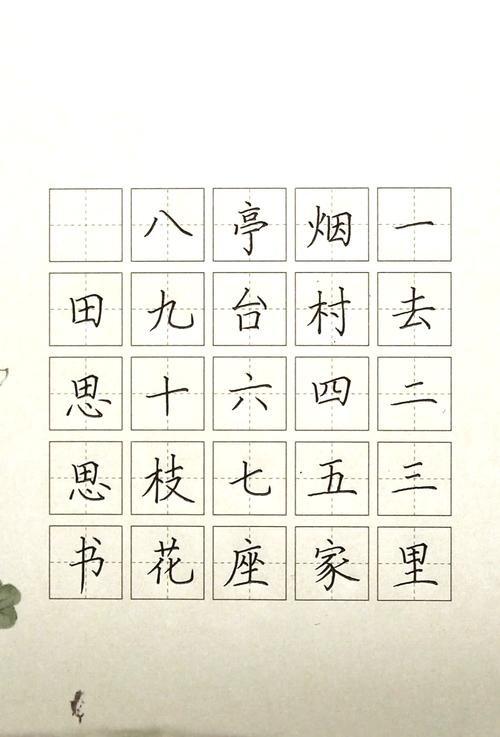 一去二三里
烟村四五家
亭台六七座
八九十枝花
田思思书